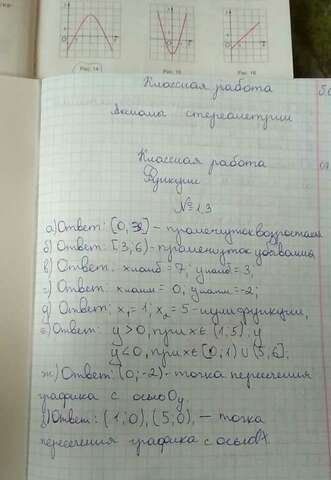 Рис. 14
Рис. 15
Рис. 16
Классная работа
Аксиомы стереометрии
Классная работа
Функции
№ 1.3
а) Ответ: [0,3] - промежуток возрастан
б) Ответ: [3,6) - промежуток убывания
в) Ответ: xнаиб = 7; yнаиб = 3,
г) Ответ: xнаим = 0, yнаим = -2;
д) Ответ: x₁ = 1; x₂ = 5 - нули функции,
е) Ответ: y > 0, при x ∈ (1,5), y
y < 0, при x ∈ [0,1) ∪ (5,6].
ж) Ответ: (0;-2) - точка пересечения
графика с осью Oy.
Ответ: (1;0), (5;0), - точка
пересечения графика с осью